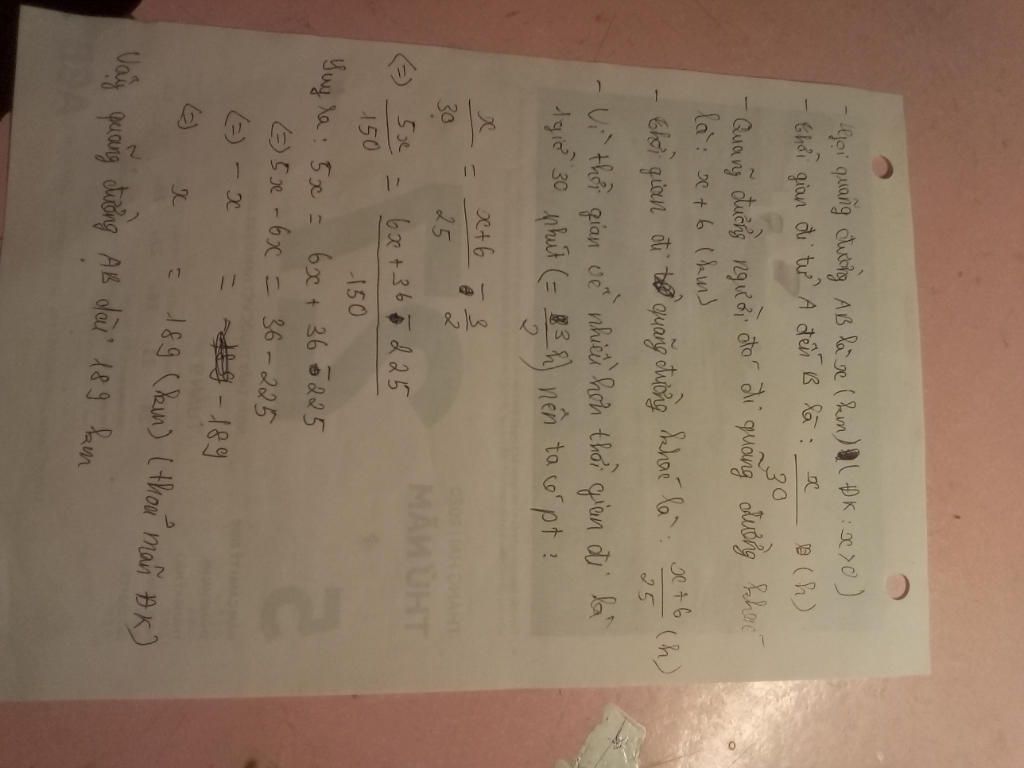 - Gọi quãng đường AB là x (km) (ĐK: x>0)
- thời gian đi từ A đến B là: x/30 (h)
- Quãng đường người đó đi quãng đường khác
là: x + 6 (km)
- thời gian đi quãng đường khác là: x+6/25 (h)
- Vì thời gian về nhiều hơn thời gian đi là
1giờ 30 phút (= 3/2 h) nên ta có pt:
x/30 = x+6/25 - 3/2
(=) 5x/150 = 6x + 36 - 225/150
Suy ra: 5x = 6x + 36 - 225
(=) 5x - 6x = 36 - 225
(=) - x = - 189
(=) x = 189 (km) (thoả mãn ĐK)
Vậy quãng đường AB dài 189 km